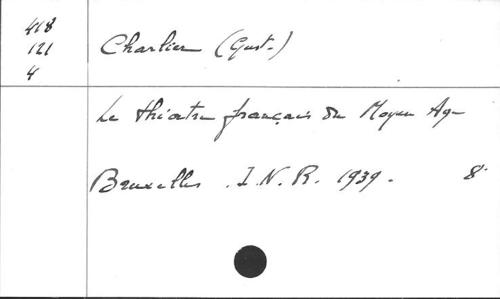 418
121
4
Charlier (Gust.)
Le théâtre français du Moyen Age
Bruxelles. I.N.R. 1939. 8°